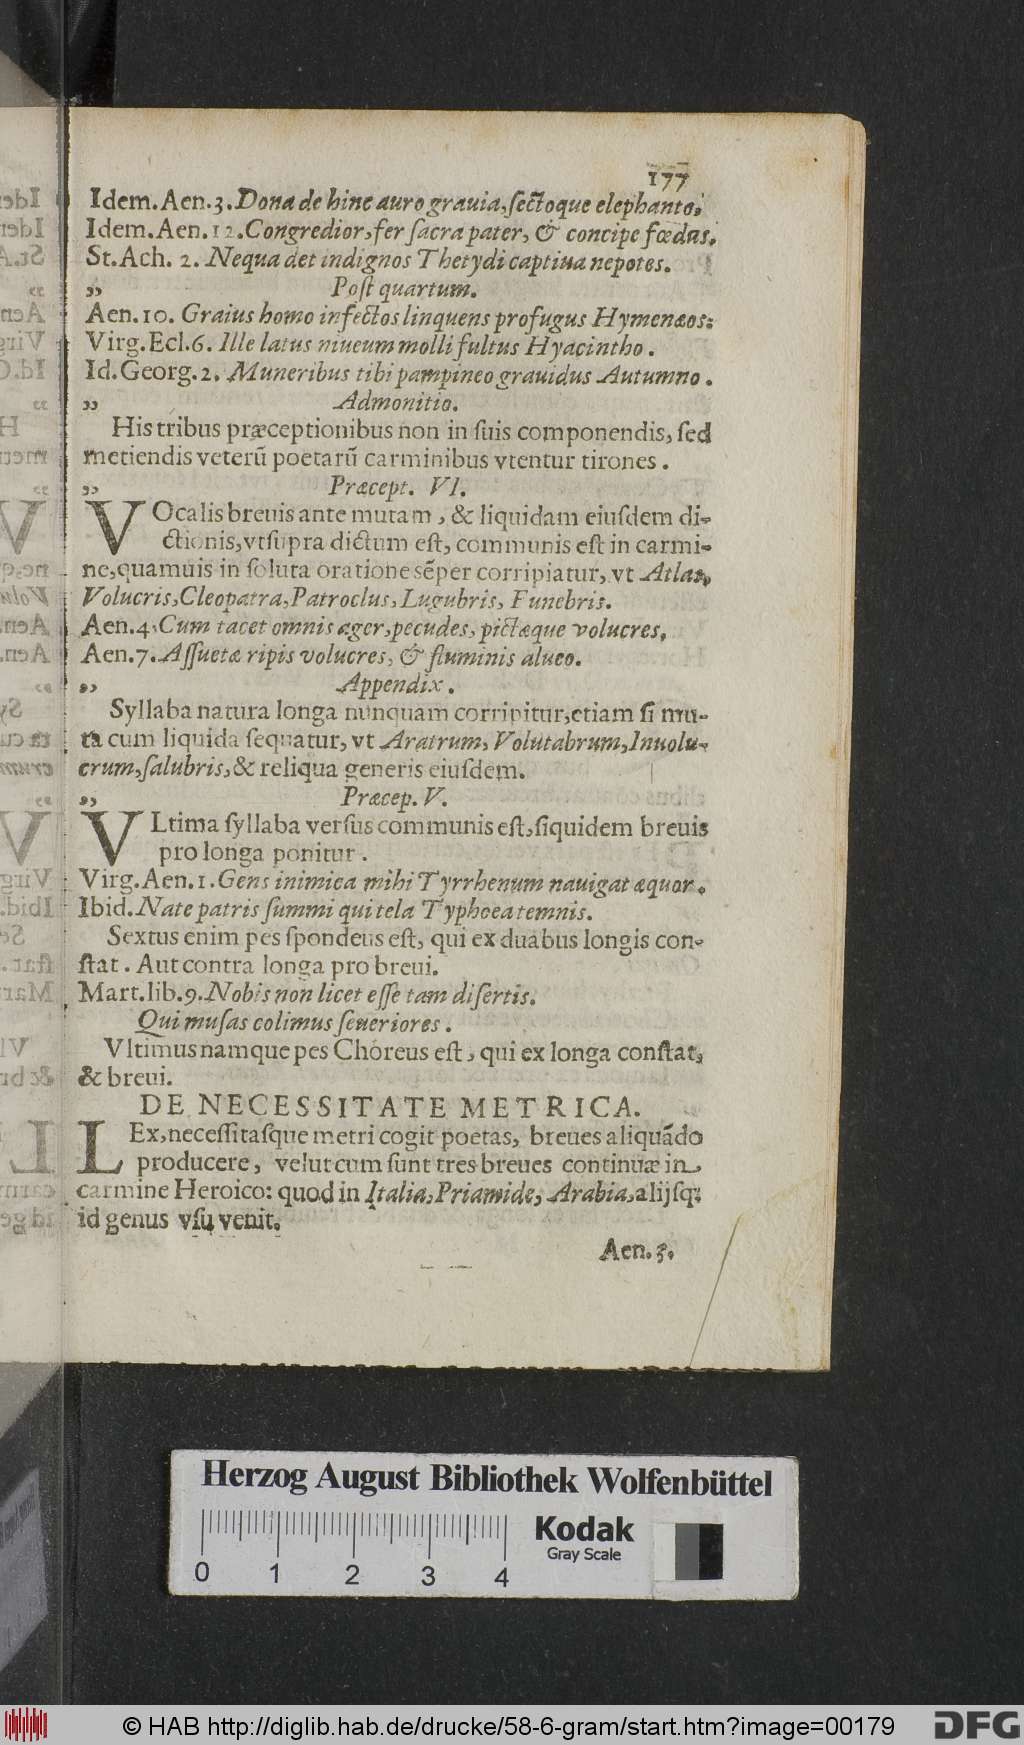 177
Idem.Aen.3.Dona de hinc auro grauia,ſectoque elephanto,
Idem.Aen.12.Congredior,fer ſacra pater, & concipe fœdus.
St.Ach. 2. Nequa det indignos Thetydi captiua nepotes.
„ Poſt quartum.
Aen.10. Graius homo infectos linquens profugus Hymenæos:
Virg.Ecl.6. Ille latus niueum molli fultus Hyacintho.
Id.Georg.2. Muneribus tibi pampineo grauidus Autumno.
„ Admonitio.
His tribus præceptionibus non in ſuis componendis, ſed
metiendis veterū poetarū carminibus vtentur tirones.
„ Præcept. VI.
VOcalis breuis ante mutam, & liquidam eiuſdem di-
ctionis,vtſupra dictum eſt, communis eſt in carmi-
ne,quamuis in ſoluta oratione sẽper corripiatur, vt Atlas,
Volucris,Cleopatra,Patroclus,Lugubris, Funebris.
Aen.4.Cum tacet omnis ager,pecudes, pictæque volucres,
Aen.7.Aſſuetæ ripis volucres, & fluminis alueo.
„ Appendix.
Syllaba natura longa nunquam corripitur,etiam ſi mu-
ta cum liquida ſequatur, vt Aratrum, Volutabrum,Inuolu-
crum,ſalubris,& reliqua generis eiuſdem.
„ Præcep. V.
VLtima ſyllaba verſus communis eſt,ſiquidem breuis
pro longa ponitur.
Virg.Aen.1.Gens inimica mihi Tyrrhenum nauigat æquor.
Ibid.Nate patris ſummi qui tela Typhoea temnis.
Sextus enim pes ſpondeus eſt, qui ex duabus longis con-
ſtat. Aut contra longa pro breui.
Mart.lib.9.Nobis non licet eſſe tam diſertis.
Qui muſas colimus ſeueriores.
Vltimus namque pes Choreus eſt, qui ex longa conſtat,
& breui.
DE NECESSITATE METRICA.
LEx,neceſſitaſque metri cogit poetas, breues aliquãdo
producere, velut cum ſunt tres breues continuæ in
carmine Heroico: quod in Italia,Priamide, Arabia,alijſq;
id genus vſu venit.
Aen.3.
Herzog August Bibliothek Wolfenbüttel
Kodak
Gray Scale
0 1 2 3 4
© HAB http://diglib.hab.de/drucke/58-6-gram/start.htm?image=00179
DFG